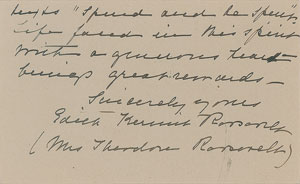 "Spend and be spent"
Life faced in this spirit
with a generous heart
brings great rewards —
Sincerely yours
Edith Kermit Roosevelt
(Mrs Theodore Roosevelt)